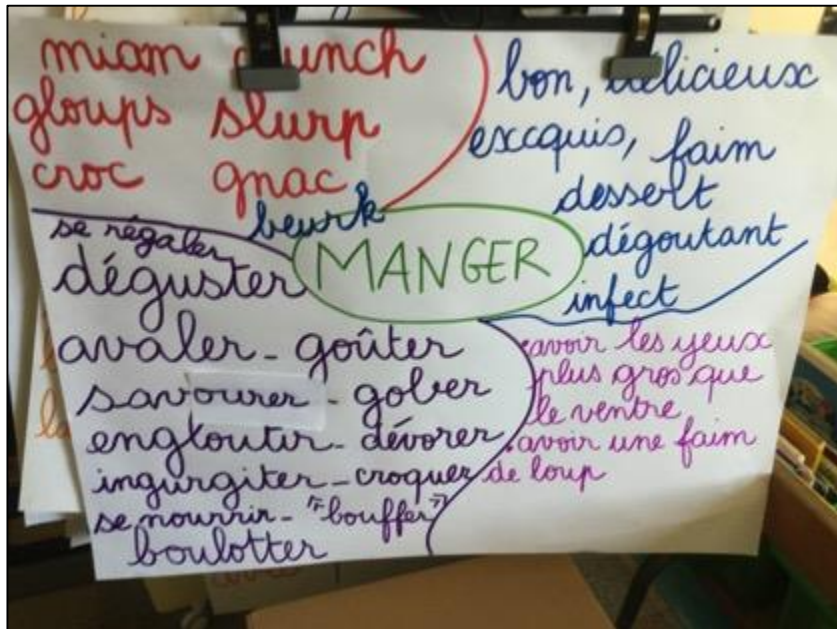 miam crunch
gloups slurp
croc gnac
beurk
bon, délicieux
excquis, faim
dessert
dégoutant
infect
MANGER
se régaler
déguster
avaler - goûter
savourer - gober
engloutir - dévorer
ingurgiter - croquer
se nourrir - "bouffer"
boulotter
.avoir les yeux
plus gros que
le ventre
.avoir une faim
de loup